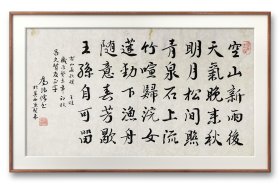 空山新雨後
天氣晚来秋
明月松間照
青泉石上流
竹喧歸浣女
蓮動下漁舟
隨意春芳歇
王孫自可留
王維